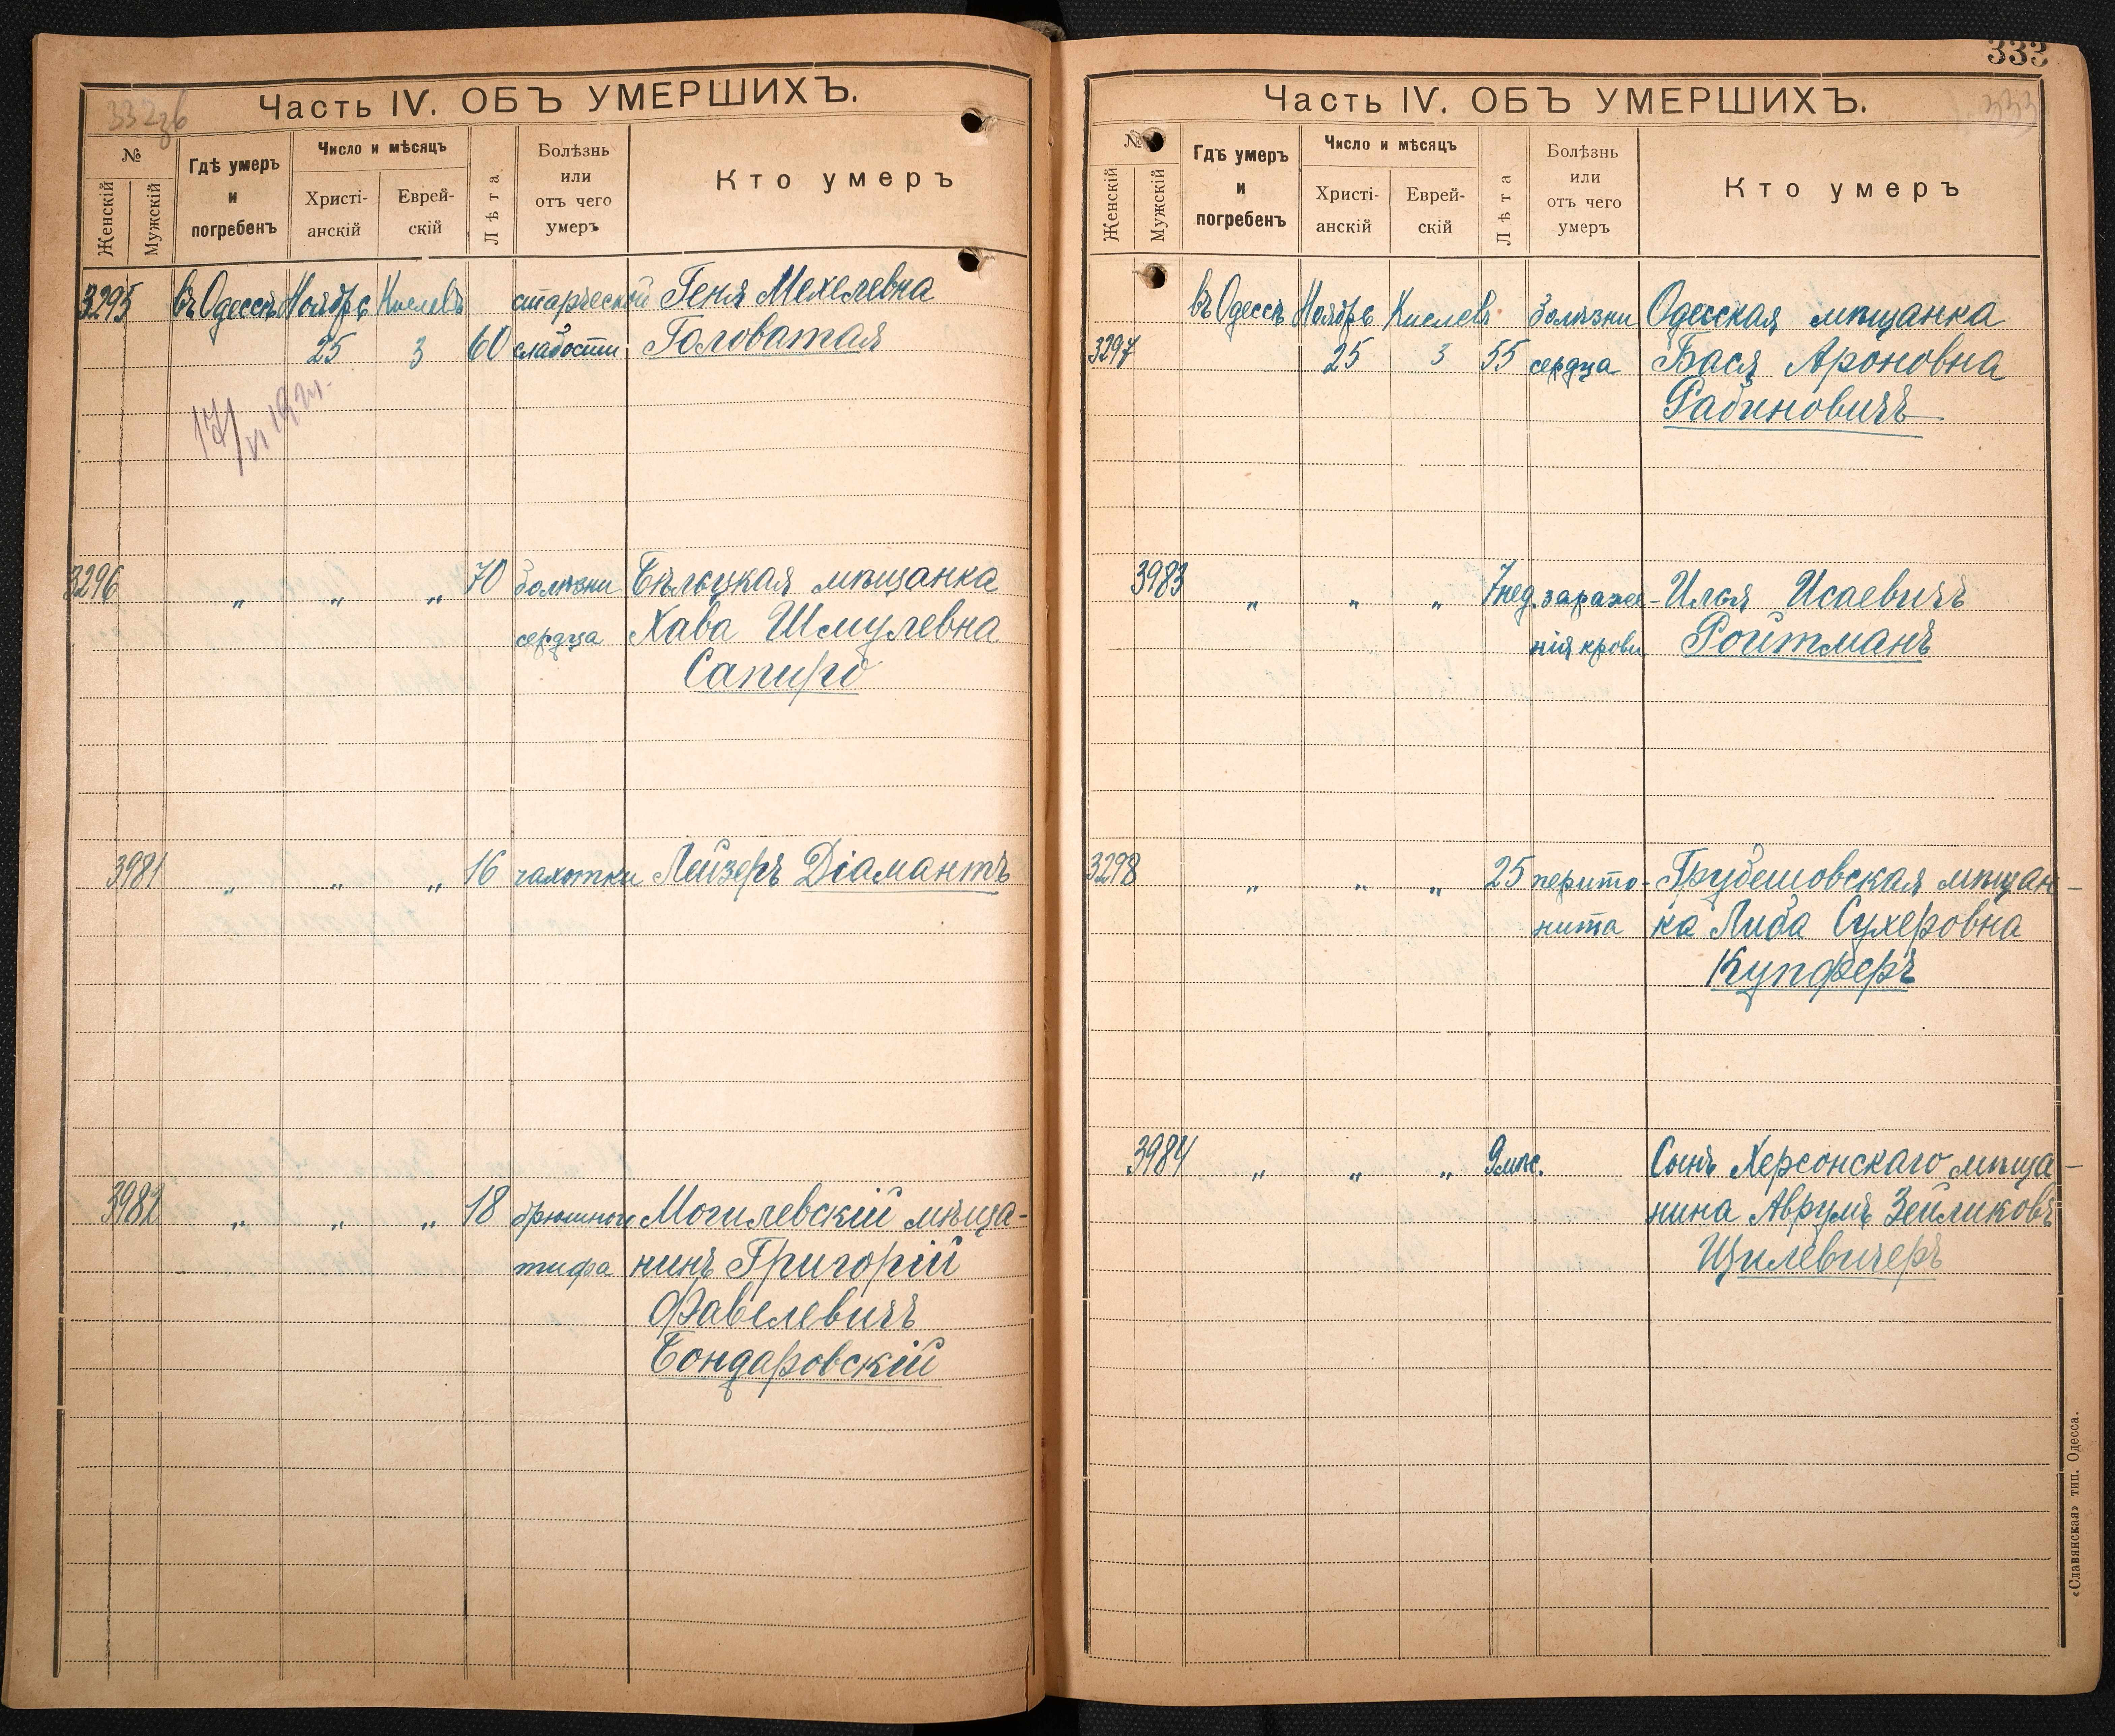 332об
Часть IV. ОБЪ УМЕРШИХЪ.
№
Женскій
Мужскій
Гдѣ умеръ
и
погребенъ
Число и мѣсяцъ
Христі-
анскій
Еврей-
скій
Лѣта
Болѣзнь
или
отъ чего
умеръ
Кто умеръ
3295 въ Одессѣ Ноябрь Кислевъ старческой Геня Мехелевна
25 3 60 слабости Головатая
17/VI
3296 „ „ „ 70 болѣзни Бѣльцкая мѣщанка
сердца Хава Шмулевна
Сапиро
3981 „ „ „ 16 чахотки Лейзеръ Діамантъ
3982 „ „ „ 18 брюшного Могилевскій мѣща-
тифа нинъ Григорій
Фавелевичъ
Бондаровскій
333
333
Часть IV. ОБЪ УМЕРШИХЪ.
№
Женскій
Мужскій
Гдѣ умеръ
и
погребенъ
Число и мѣсяцъ
Христі-
анскій
Еврей-
скій
Лѣта
Болѣзнь
или
отъ чего
умеръ
Кто умеръ
въ Одессѣ Ноябрь Кислевъ болѣзни Одесская мѣщанка
3297 25 3 55 сердца Бася Ароновна
Рабиновичъ
3983 „ „ „ 7нед. зараже- Илья Исаевичъ
нія крови Ройтманъ
3298 „ „ „ 25 перито- Грубешовская мѣщан-
нита ка Либа Сухеровна
Купферъ
3984 „ „ „ 9мѣс. Сынъ Херсонскаго мѣща-
нина Аврумъ Зейликовъ
Цилевичеръ
«Славянская» тип. Одесса.